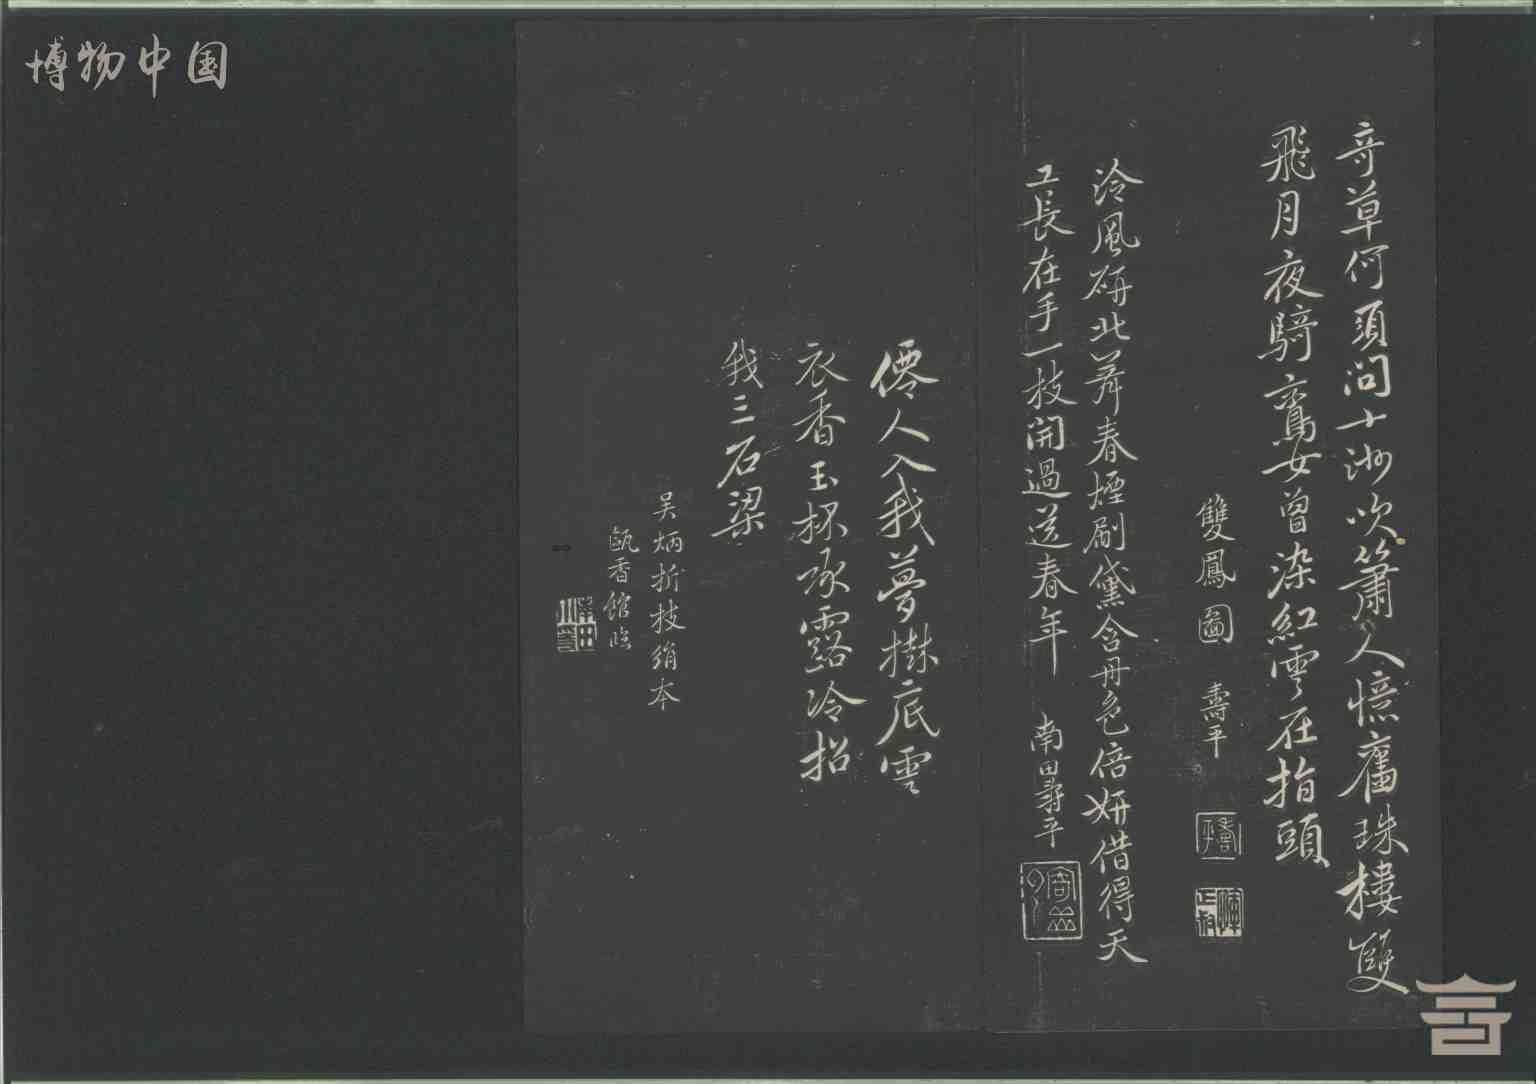 博物中国
奇草何須問十洲吹簫人憶舊珠樓雙
飛月夜騎鸞女曾染紅雲在指頭
雙鳳圖 壽平
泠風研北荐春煙刷黛含丹色倍妍借得天
工長在手一枝開過送春年 南田壽平
僊人入我夢樹底雲
衣香玉杯承露冷招
我三石梁
吴炳折枝絹本
甌香館臨